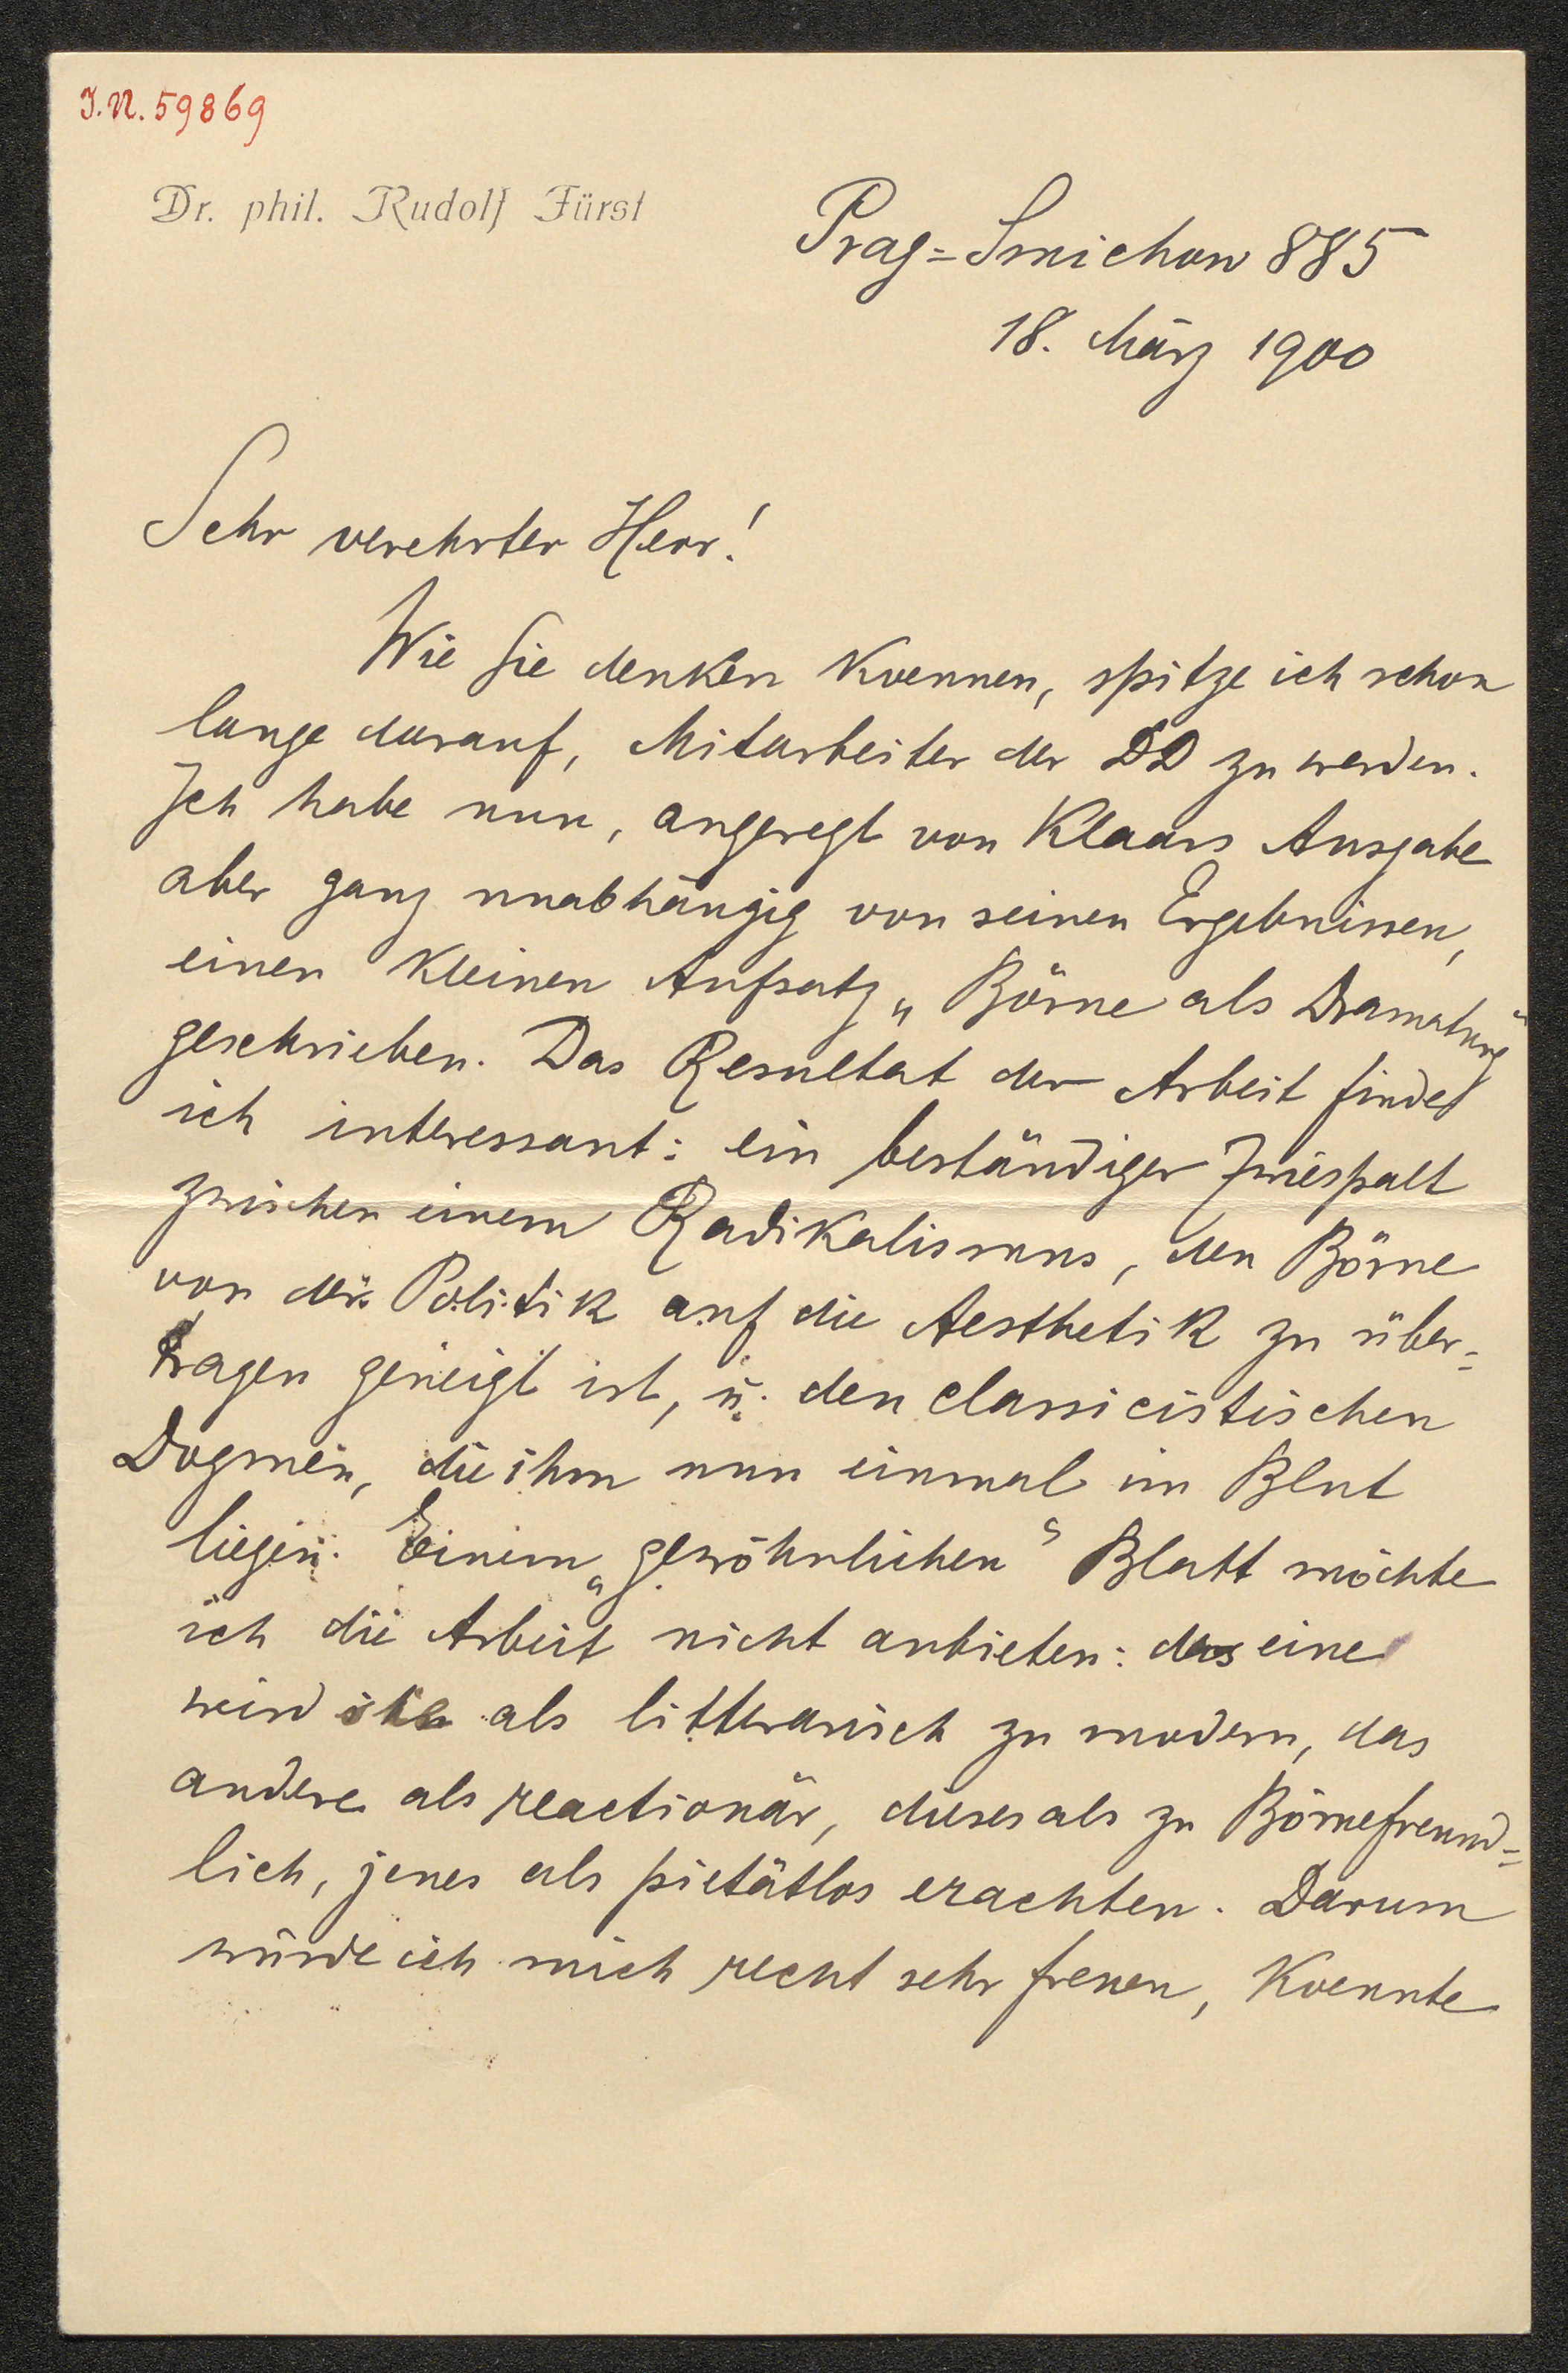 J.N. 59869
Dr. phil. Rudolf Fürst
Prag=Smichow 885
18. März 1900
Sehr verehrter Herr!
Wie Sie denken koennen, spitze ich schon
lange darauf, Mitarbeiter der DD zu werden.
Ich habe nun, angeregt von Klaars Ausgabe
aber ganz unabhängig von seinen Ergebnissen,
einen kleinen Aufsatz „Börne als Dramaturg“
geschrieben. Das Resultat der Arbeit finde
ich interessant: ein beständiger Zwiespalt
zwischen einem Radikalismus, den Börne
von der Politik auf die Aesthetik zu über=
tragen geneigt ist, u. den classicistischen
Dogmen, die ihm nun einmal im Blut
liegen. Einem „gewöhnlichen“ Blatt möchte
ich die Arbeit nicht anbieten: das eine
wird sie als litterarisch zu modern, das
andere als reactionär, dieses als zu Börnefreund=
lich, jenes als pietätlos erachten. Darum
würde ich mich recht sehr freuen, koennte